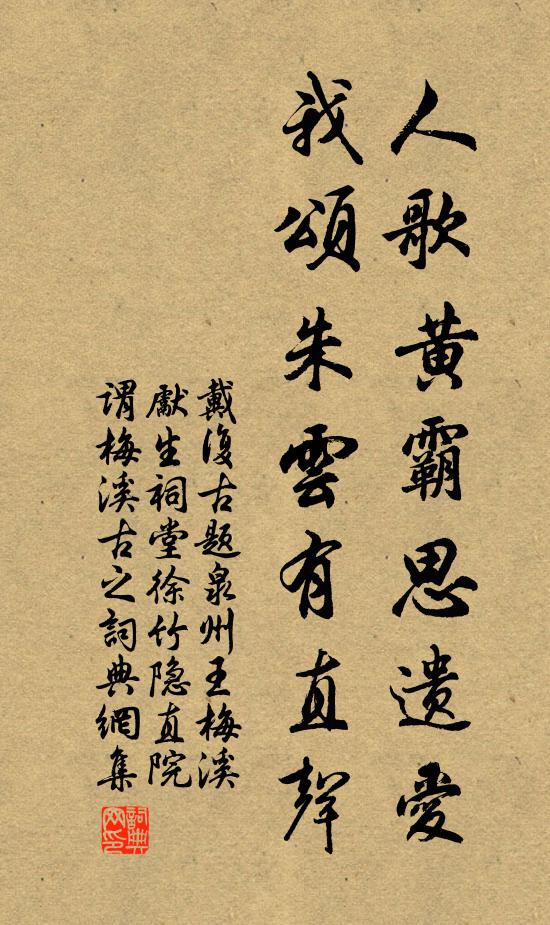 人歌黄霸思遗愛
我頌朱雲有直聲
戴復古题泉州王梅溪
獻生祠堂徐竹隐直院
谓梅溪古之詞典網集
詞典网印